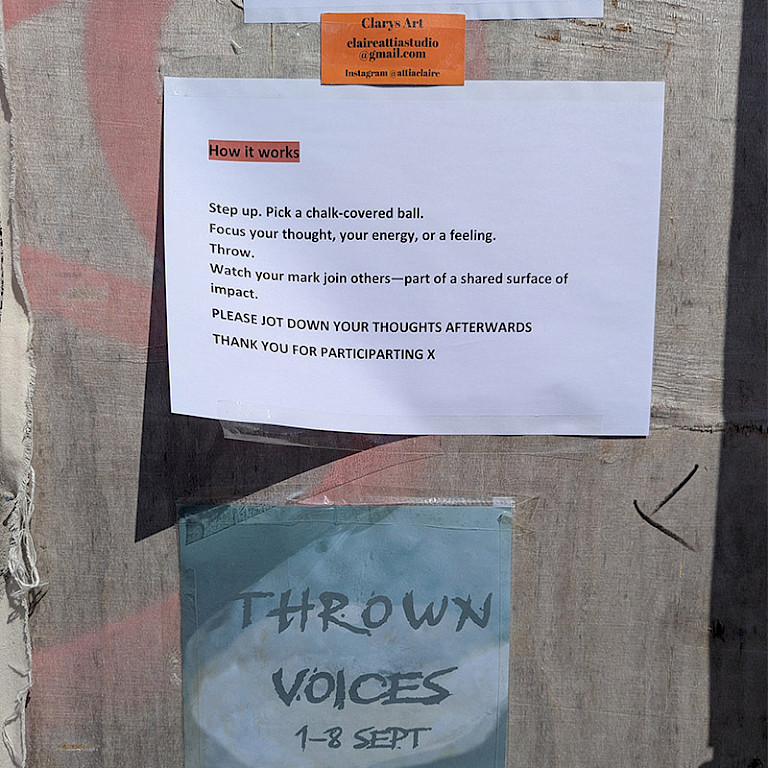 Clarys Art
claireattiastudio
@gmail.com
Instagram @attiaclaire
How it works
Step up. Pick a chalk-covered ball.
Focus your thought, your energy, or a feeling.
Throw.
Watch your mark join others—part of a shared surface of
impact.
PLEASE JOT DOWN YOUR THOUGHTS AFTERWARDS
THANK YOU FOR PARTICIPARTING X
THROWN
VOICES
1–8 SEPT